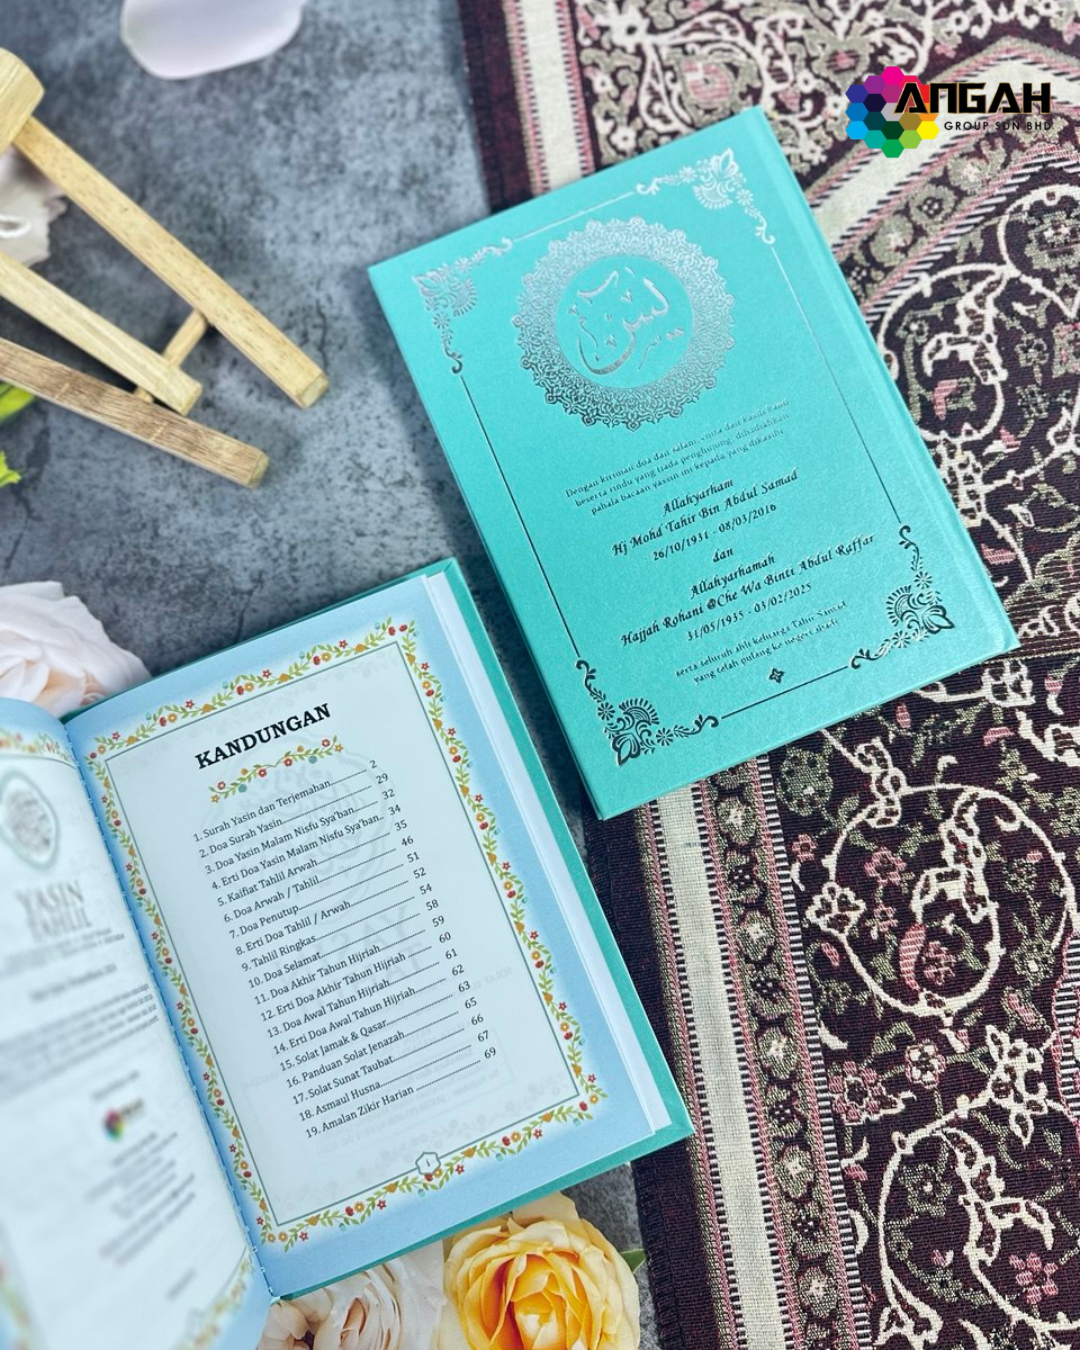 ANGAH
GROUP SDN BHD
يس
Dengan kiriman doa dan salam, cinta dan kasih kami
beserta rindu yang tiada penghujung, dihadiahkan
pahala bacaan yassin ini kepada yang dikasihi
Allahyarham
Hj Mohd Tahir Bin Abdul Samad
26/10/1931 - 08/03/2016
dan
Allahyarhamah
Hajjah Rohani @Che Wa Binti Abdul Raffar
31/05/1935 - 03/02/2025
serta seluruh ahli keluarga Tahir Samad
yang telah pulang ke negeri abadi
KANDUNGAN
1. Surah Yasin dan Terjemahan 2
2. Doa Surah Yasin 29
3. Doa Yasin Malam Nisfu Sya'ban 32
4. Erti Doa Yasin Malam Nisfu Sya'ban 34
5. Kaifiat Tahlil Arwah 35
6. Doa Arwah / Tahlil 46
7. Doa Penutup 51
8. Erti Doa Tahlil / Arwah 52
9. Tahlil Ringkas 54
10. Doa Selamat 58
11. Doa Akhir Tahun Hijriah 59
12. Erti Doa Akhir Tahun Hijriah 60
13. Doa Awal Tahun Hijriah 61
14. Erti Doa Awal Tahun Hijriah 62
15. Solat Jamak & Qasar 63
16. Panduan Solat Jenazah 65
17. Solat Sunat Taubat 66
18. Asmaul Husna 67
19. Amalan Zikir Harian 69
1
YASIN
TAHLIL